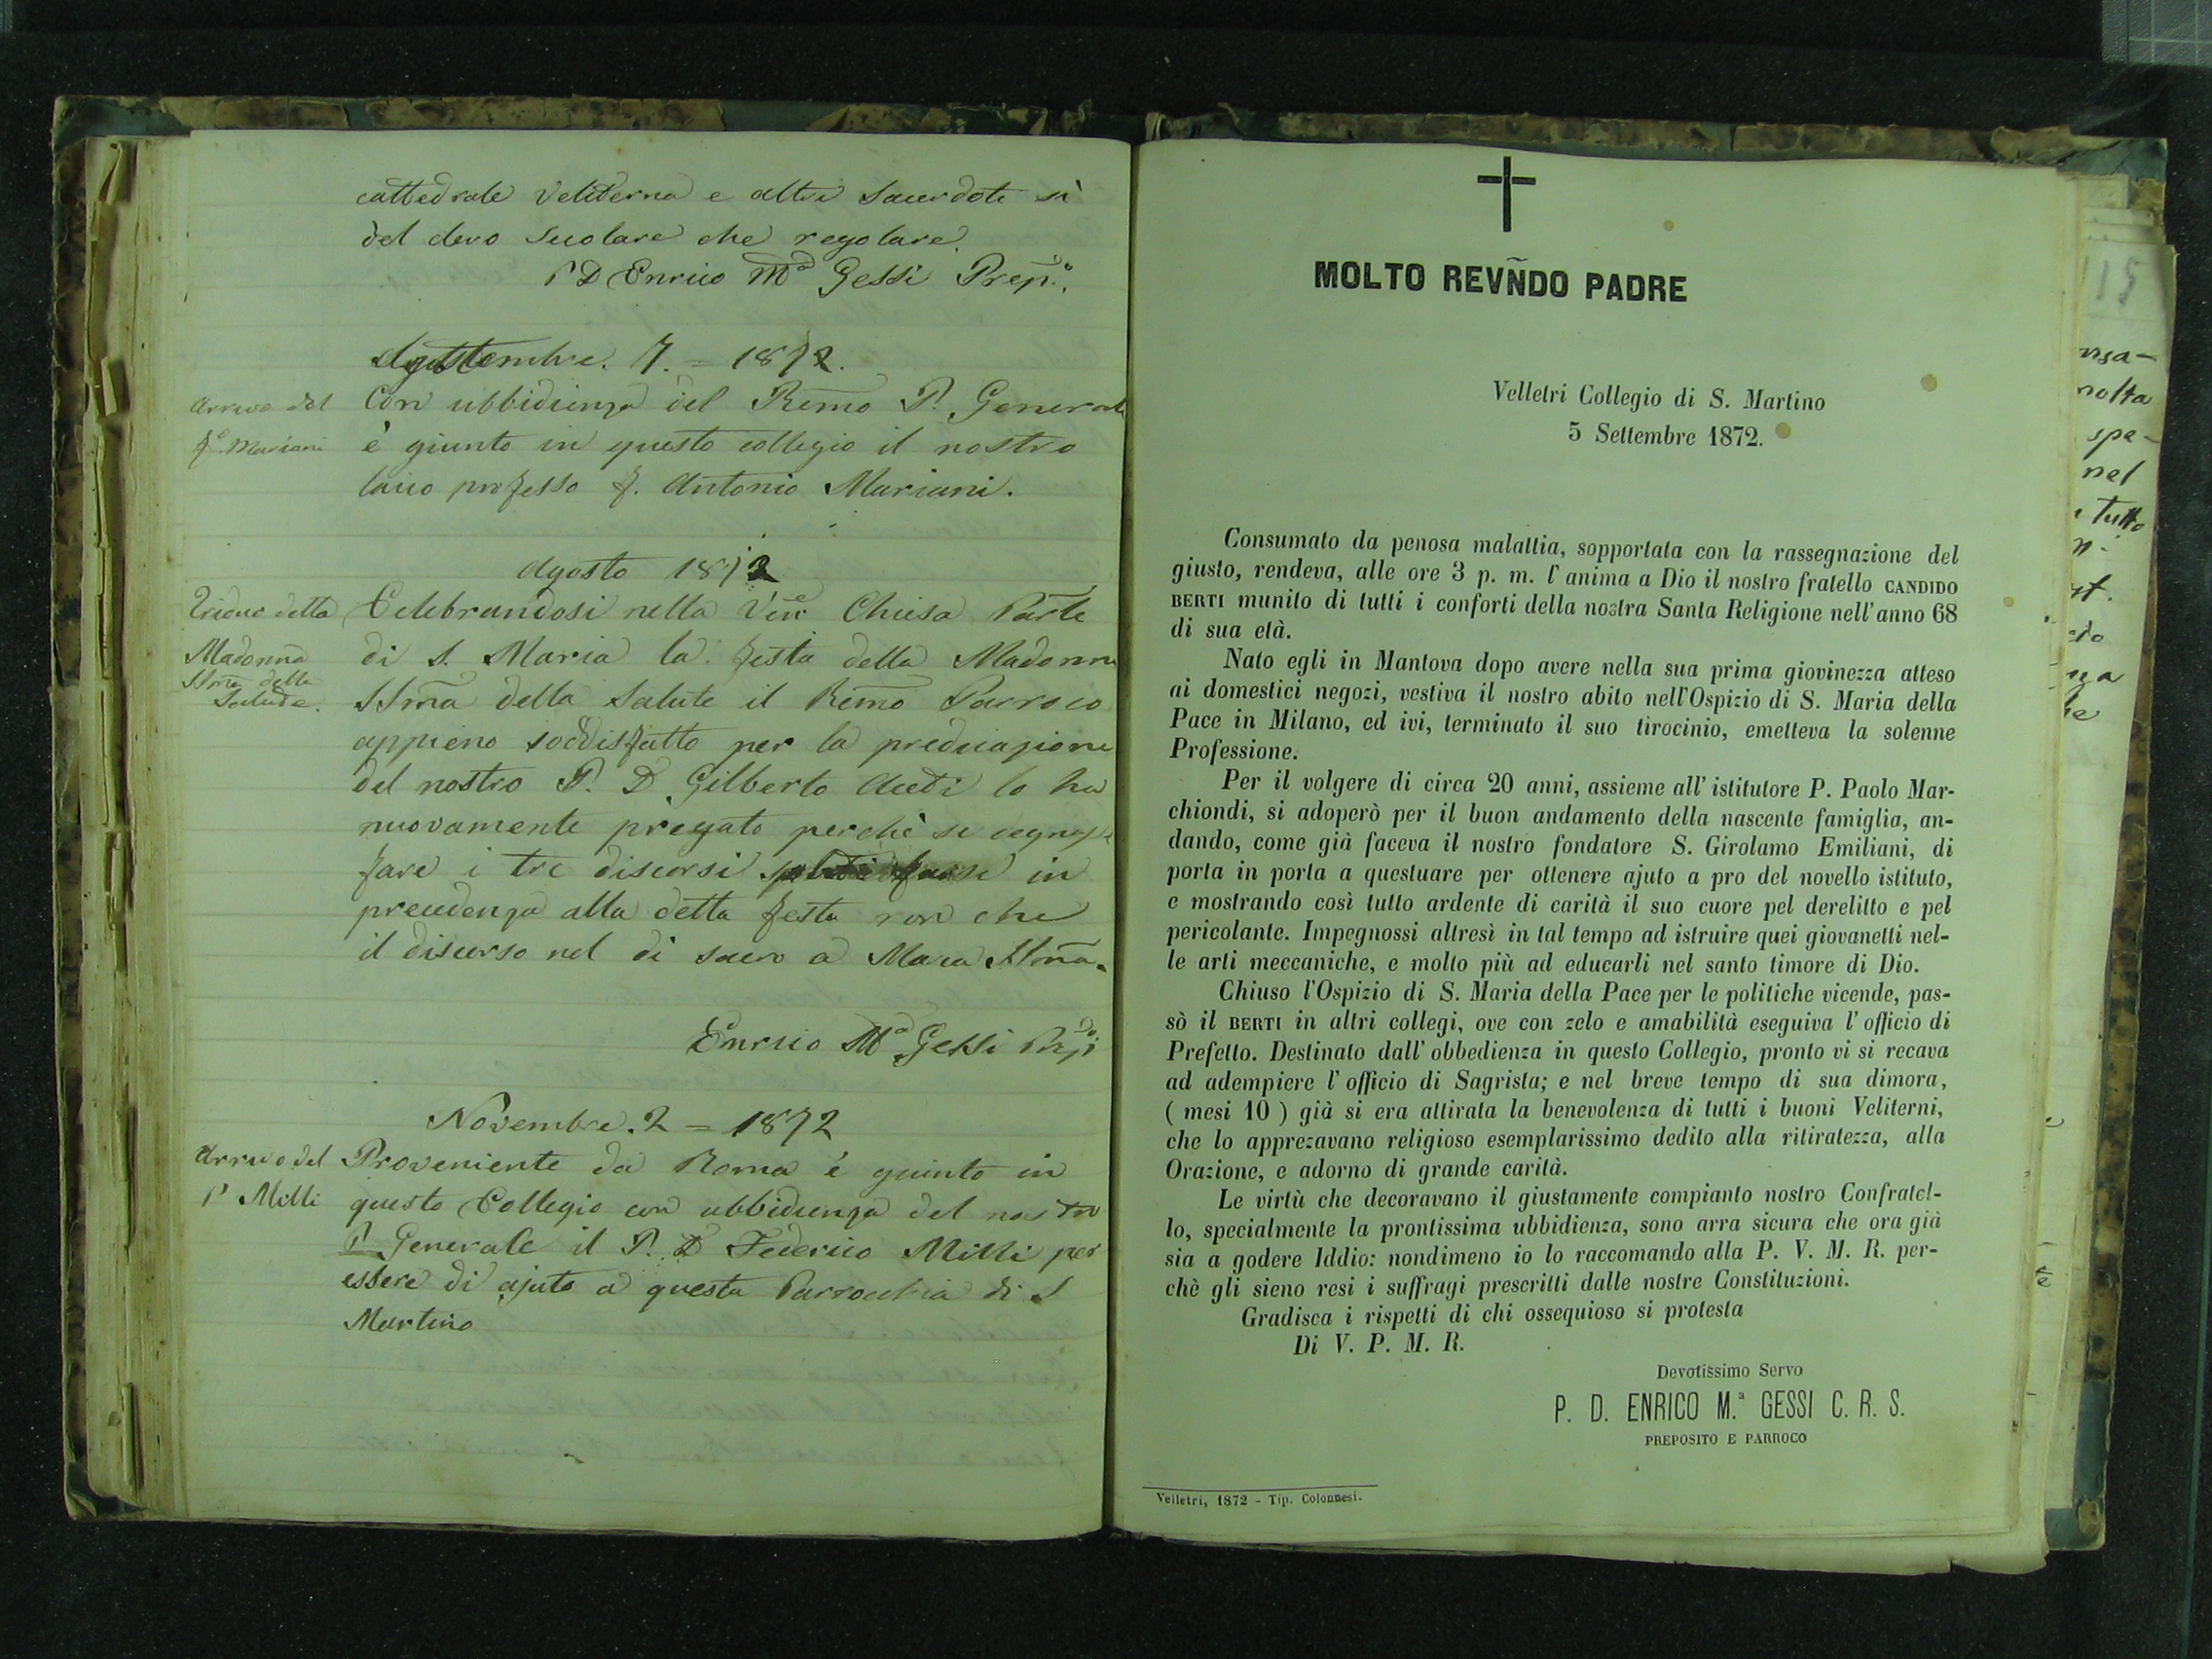 cattedrale Veliterna e altri Sacerdoti sì
del clero Secolare che regolare.
P D Enrico Mª Gessi Prep.º
Settembre. 7. = 1872.
Arrivo del
f. Mariani
Con ubbidienza del Remo P. Generale
è giunto in questo collegio il nostro
laico professo f. Antonio Mariani.
Agosto 1872
Triduo della
Madonna
SSma della
Salute.
Celebrandosi nella Ven. Chiesa Parle
di S. Maria la festa della Madonna
SSma della Salute il Remo Parroco
appieno soddisfatto per la predicazione
del nostro P. D. Gilberto lo ha
nuovamente pregato perchè si
fare i tre discorsi in
precedenza alla detta festa non che
il discorso nel dì sacro a Maria SSma.
Enrico Mª Gessi Prepº
Novembre. 2 = 1872
Arrivo del
P Milli
Proveniente da Roma è giunto in
questo Collegio con ubbidienza del nostro
P. Generale il P. D Federico Milli per
essere di ajuto a questa Parrocchia di S
Martino
MOLTO REVÑDO PADRE
Velletri Collegio di S. Martino
5 Settembre 1872.
Consumato da penosa malattia, sopportata con la rassegnazione del
giusto, rendeva, alle ore 3 p. m. l'anima a Dio il nostro fratello CANDIDO
BERTI munito di tutti i conforti della nostra Santa Religione nell'anno 68
di sua età.
Nato egli in Mantova dopo avere nella sua prima giovinezza atteso
ai domestici negozi, vestiva il nostro abito nell'Ospizio di S. Maria della
Pace in Milano, ed ivi, terminato il suo tirocinio, emetteva la solenne
Professione.
Per il volgere di circa 20 anni, assieme all'istitutore P. Paolo Mar-
chiondi, si adoperò per il buon andamento della nascente famiglia, an-
dando, come già faceva il nostro fondatore S. Girolamo Emiliani, di
porta in porta a questuare per ottenere ajuto a pro del novello istituto,
e mostrando così tutto ardente di carità il suo cuore pel derelitto e pel
pericolante. Impegnossi altresì in tal tempo ad istruire quei giovanetti nel-
le arti meccaniche, e molto più ad educarli nel santo timore di Dio.
Chiuso l'Ospizio di S. Maria della Pace per le politiche vicende, pas-
sò il BERTI in altri collegi, ove con zelo e amabilità eseguiva l'officio di
Prefetto. Destinato dall'obbedienza in questo Collegio, pronto vi si recava
ad adempiere l'officio di Sagrista; e nel breve tempo di sua dimora,
( mesi 10 ) già si era attirata la benevolenza di tutti i buoni Veliterni,
che lo apprezavano religioso esemplarissimo dedito alla ritiratezza, alla
Orazione, e adorno di grande carità.
Le virtù che decoravano il giustamente compianto nostro Confratel-
lo, specialmente la prontissima ubbidienza, sono arra sicura che ora già
sia a godere Iddio: nondimeno io lo raccomando alla P. V. M. R. per-
chè gli sieno resi i suffragi prescritti dalle nostre Constituzioni.
Gradisca i rispetti di chi ossequioso si protesta
Di V. P. M. R.
Devotissimo Servo
P. D. ENRICO M.ª GESSI C. R. S.
PREPOSITO E PARROCO
Velletri, 1872 - Tip. Colonnesi.